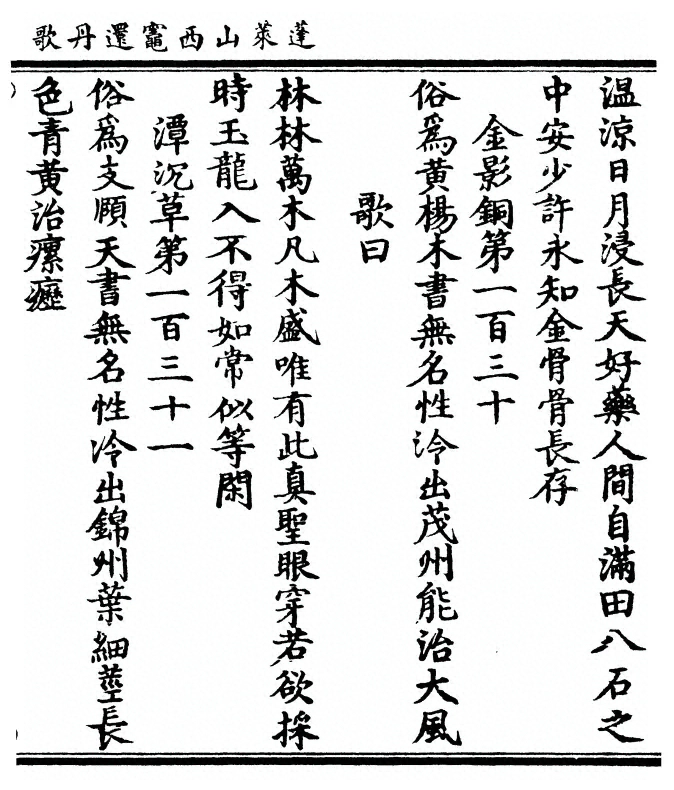 蓬萊山西竈還丹歌
温涼日月浸長天好藥人間自滿田八石之
中安少許永知金骨骨長存
金影銅第一百三十
俗爲黃楊木書無名性冷出茂州能治大風
歌曰
林林萬木凡木盛唯有此真聖眼穿若欲採
時玉龍入不得如常似等閑
潭沉草第一百三十一
俗爲支頋天書無名性冷出錦州葉細莖長
色青黃治瘰癧